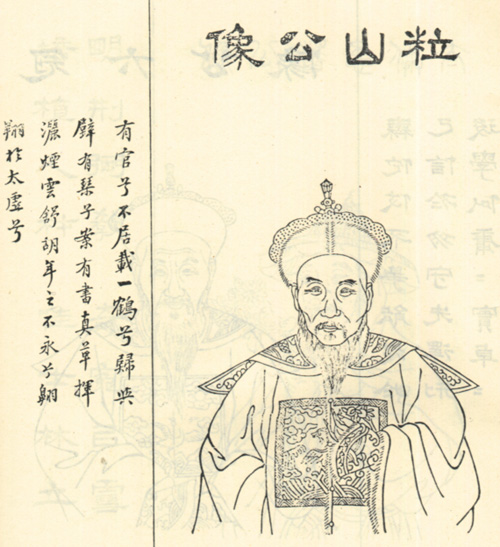 粒山公像
有官兮不居載一鶴兮歸與
壁有琴兮案有書真草揮
灑煙雲舒胡年之不永兮翺
翔於太虛兮